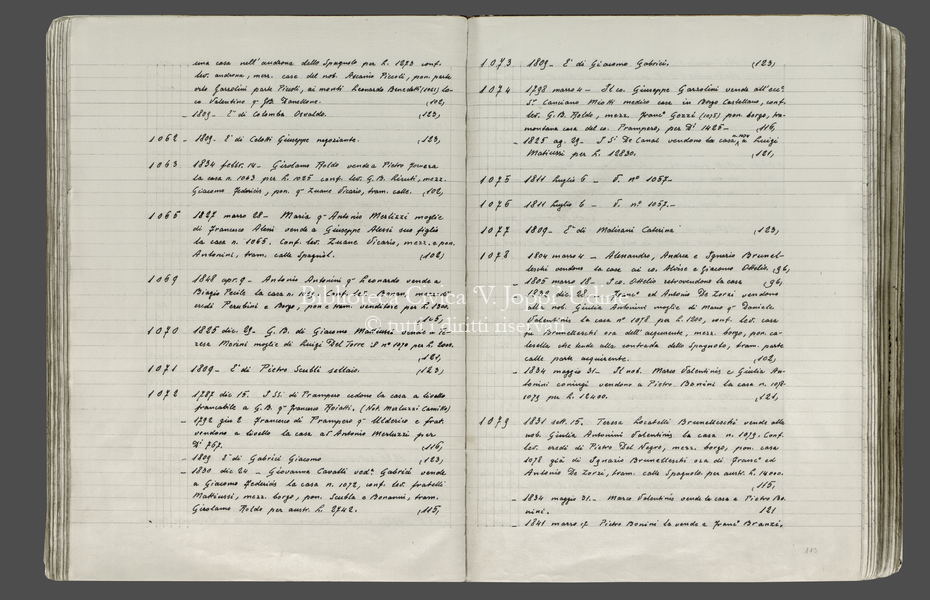 una casa nell'androna dello Spagnolo per L. 1273 conf.
lev. androna, merz. case del nob. Ascanio Piccoli, pon. parte
orto Gorzolini parte Picoli, ai monti Leonardo Benedetti (1061) lo-
co Valentino q GB. Danellone. (102,
- 1809. E' di Colomba Osvaldo. (123,
1062 - 1809. E' di Colotti Giuseppe negoziante. (123,
1063 1834 febbr. 14 - Girolamo Roldo vende a Pietro
la casa n. 1063 per L. 1025 conf. lev. G.B. Liruti, mezz.
Giacomo Federicis, pon. q Zuane Vicario, tram. calle. (102,
1065 1827 marzo 28 - Maria q Antonio Merluzzi moglie
di Francesco Alessi vende a Giuseppe Alessi suo figlio
la casa n. 1065. Conf. lev. Zuane Vicario, mezz. e pon.
Antonini, tram. calle Spagnol. (102)
1069 1848 apr. 9 - Antonio Antonini q Leonardo vende a
Biagio Pecile la casa n. Conf. lev.
eredi Perabini a Borgo, pon. e tram. venditore per L. 1300.
(145,
1070 1825 dic. 29 - G.B. di Giacomo Mattiussi vende a Te-
resa Morini moglie di Luigi Del Torre il nº 1070 per L. 2000.
(121,
1071 1809 - E' di Pietro Scubli sellaio. (123,
1072 1787 dic 15. S.Si. di Trampero cedono la casa a livello
francabile a G.B. q Francesco Roiatti. (Not. Merluzzi Camillo)
- 1792 giu 2 Francesco di Prampero q Ulderico e frat.
vendono a livello la casa ad Antonio Merluzzi per
D.i 767. (116,
- 1809 E' di Gabrici Giacomo (123,
- 1830 dic 24 - Giovanna Cavalli ved.ª Gabrici vende
a Giacomo Federicis la casa n. 1072, conf. lev. fratelli
Mattiussi, mezz. borgo, pon. Scubla e Bonanni, tram.
Girolamo Roldo per austr. L. 2742. (115,
1073 1809 - E' di Giacomo Gabrici. (123,
1074 1798 marzo 4 - Il co. Giuseppe Garzolini vende all'ecc.
S.r Canciano Miotti medico case in Borgo Castellano, conf.
lev. G.B. Roldo, mezz. Franc.º Gozzi (1075) pon. borgo, tra-
montana casa del co. Prampero, per D.i 1425 - (116,
- 1825 ag. 29 - S.Si De Canal vendono la casa n. 1074 a Luigi
Matiussi per L. 12830. (121,
1075 1811 luglio 6 - V. nº 1057 -
1076 1811 luglio 6 - V. nº 1057. -
1077 1809 - E' di Molinari Caterina (123,
1078 1804 marzo 4 - Alessandro, Andrea e Ignazio Brunel-
leschi vendono la casa ai co. Alvise e Giacomo Ottelio. (96,
- 1805 marzo 18 - I co. Ottelio retrovendono la casa (96,
- 28 - Franc.º ed Antonio De Zorzi vendono
alla nob. Giulia Antonini moglie di Marco q Daniele
Valentinis la casa nº 1078 per L. 1200, conf. lev. casa
Brunelleschi ora dell'acquirente, mezz. borgo, pon. ca-
lesella che tende alla contrada dello Spagnolo, tram. parte
calle parte acquirente. (102,
- 1834 maggio 31 - Il nob. Marco Valentinis e Giulia An-
tonini coniugi vendono a Pietro Bonini la casa n. 1078-
1079 per L. 12400. (121,
1079 1831 sett. 15. Teresa Locatelli Brunelleschi vende alla
nob. Giulia Antonini Valentinis la casa n. 1079. Conf.
lev. eredi di Pietro Del Negro, mezz. borgo, pon. casa
1078 già di Ignazio Brunelleschi ora di Franc.º ed
Antonio De Zorzi, tram. calle Spagnola per austr. L. 14000.
(115,
- 1834 maggio 31 - Marco Valentinis vende la casa a Pietro Bo-
nini. 121
- 1841 marzo 17 Pietro Bonini la vende a Franc.º Branzi,
113
Biblioteca Civica 'V. Joppi' Udine
© tutti i diritti riservati